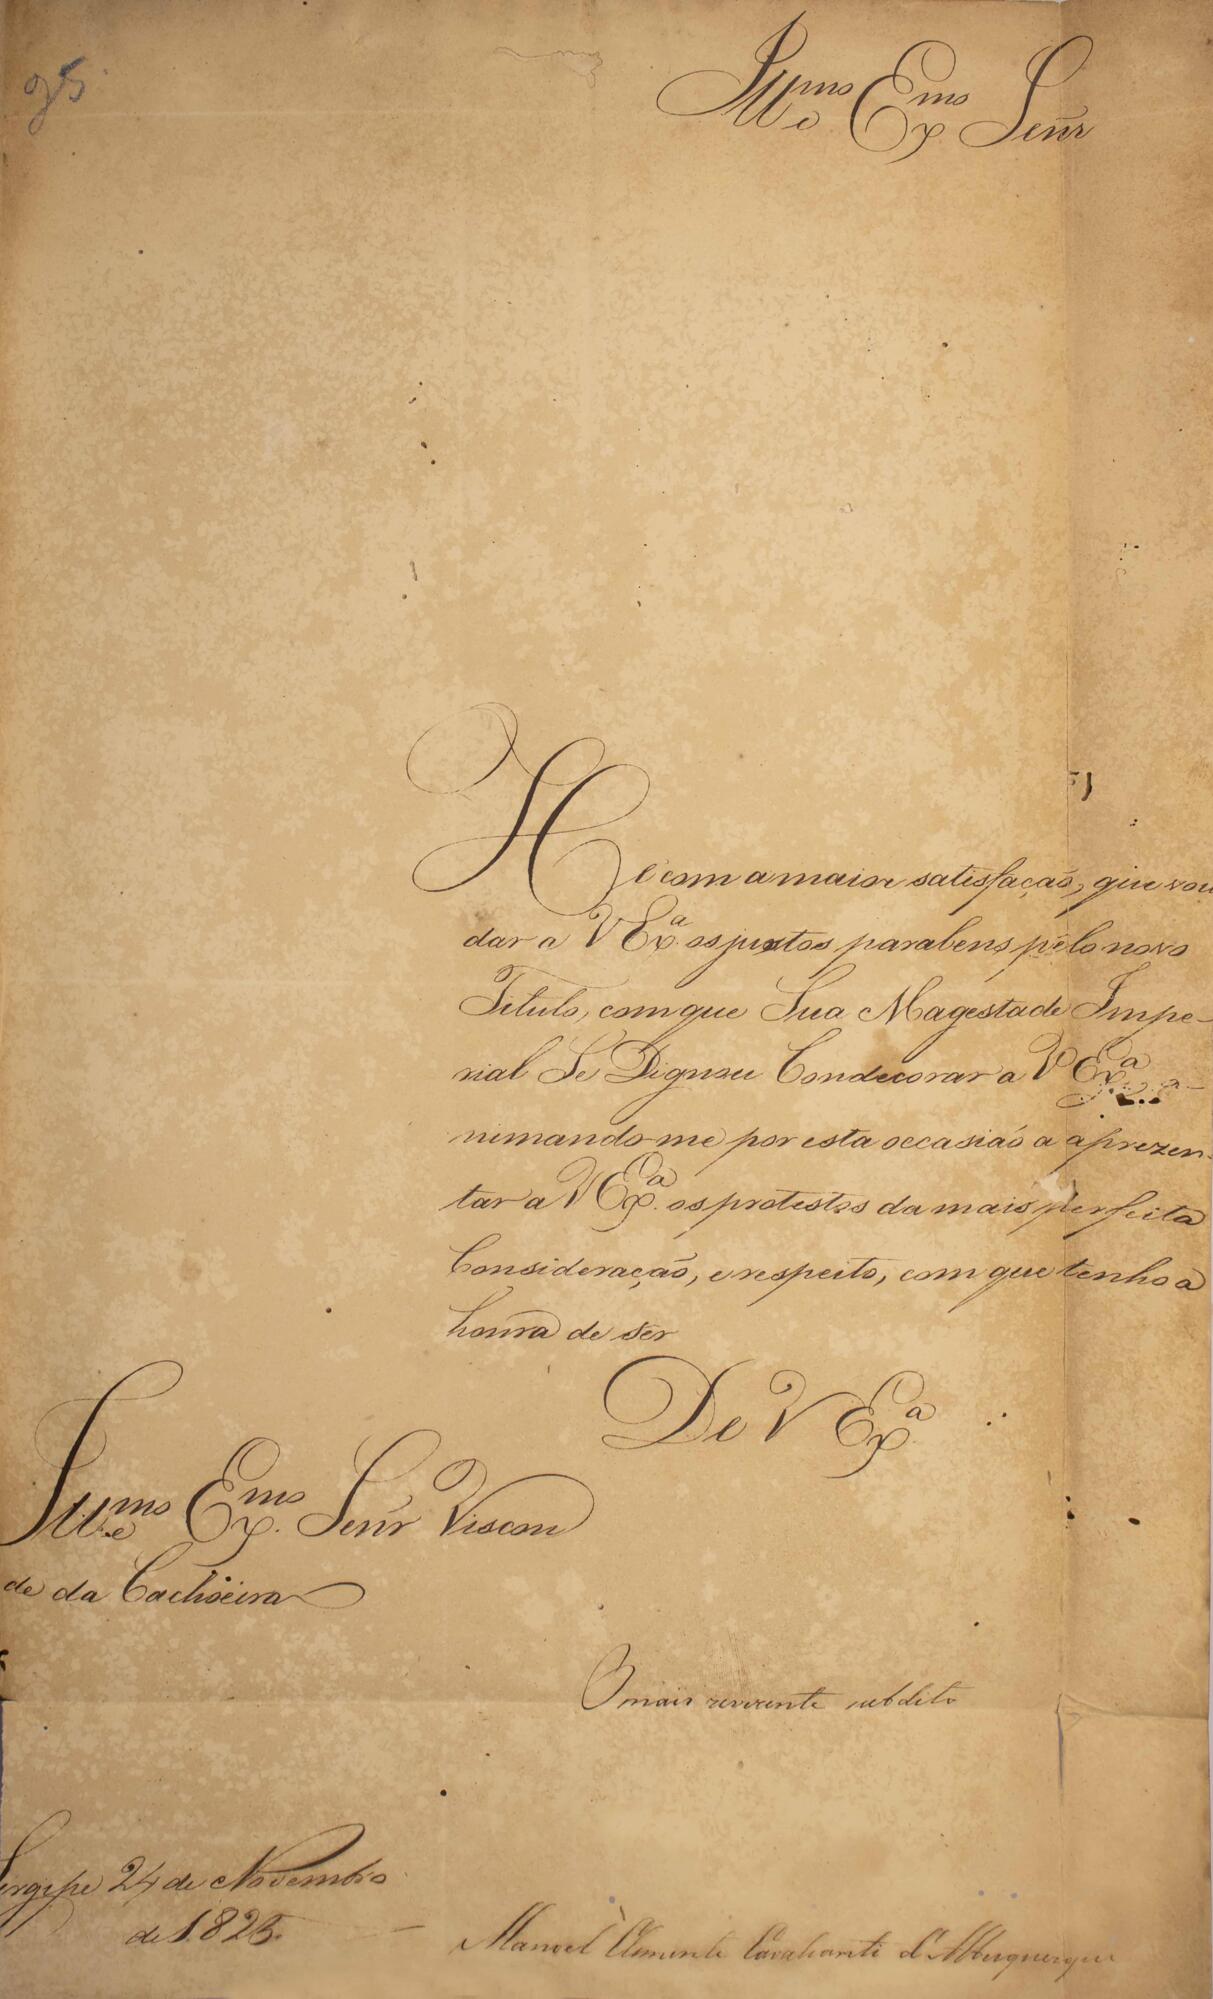 95
Illmo e Exmo Senr
He com a maior satisfação, que vou
dar a VExa. os justos parabens pelo novo
Titulo, com que Sua Magestade Impe-
rial Se Dignou Condecorar a VExa a-
nimando-me por esta occasião a aprezen-
tar a VExa. os protestos da mais perfeita
Consideração, e respeito, com que tenho a
honra de ser
De VExa
Illmo e Exmo. Senr Viscon
de da Cachoeira
O mais reverente subdito
Sergipe 24 de Novembro
de 1825.
Manoel Clemente Cavalcanti d'Albuquerque